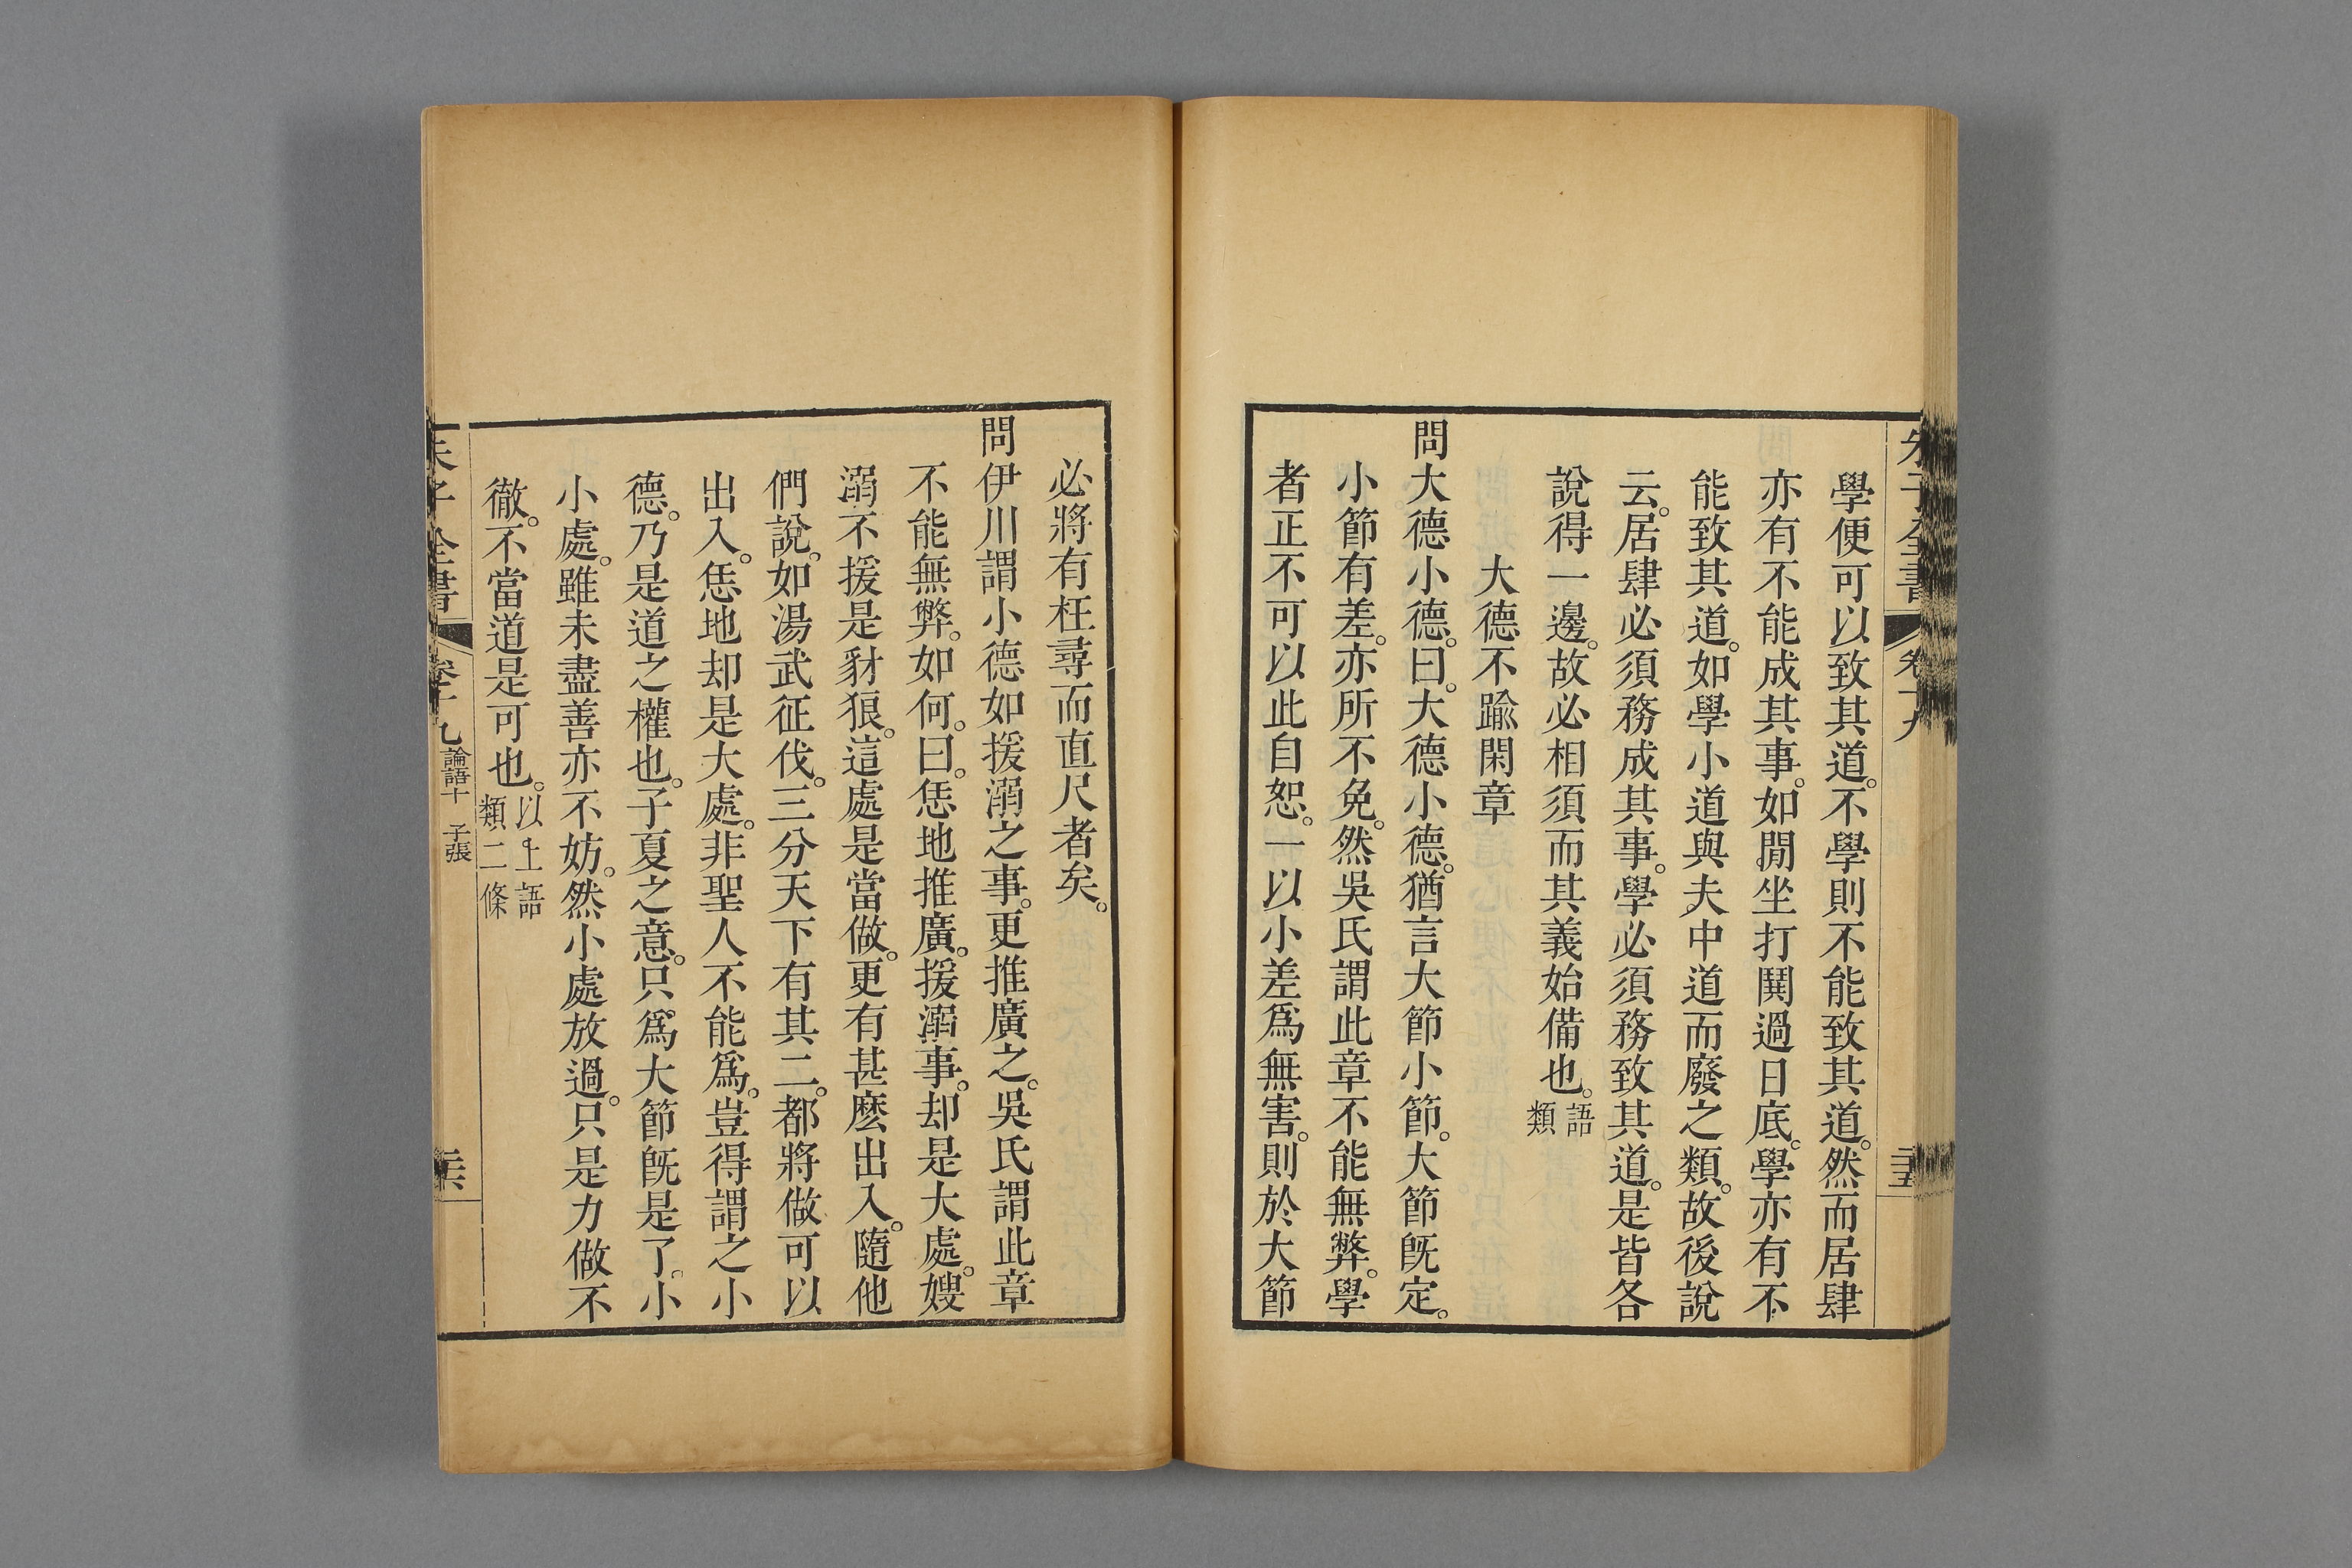 朱子全書 卷十九 二十五
學便可以致其道。不學則不能致其道。然而居肆
亦有不能成其事。如閒坐打鬨過日底。學亦有不
能致其道。如學小道與夫中道而廢之類。故後說
云。居肆必須務成其事。學必須務致其道。是皆各
說得一邊。故必相須而其義始備也。語類
大德不踰閑章
問大德小德。曰。大德小德。猶言大節小節。大節旣定。
小節有差。亦所不免。然吳氏謂此章不能無弊。學
者正不可以此自恕。一以小差爲無害。則於大節
必將有枉尋而直尺者矣。
問伊川謂小德如援溺之事。更推廣之。吳氏謂此章
不能無弊。如何。曰。恁地推廣。援溺事。却是大處。嫂
溺不援是豺狼。這處是當做。更有甚麽出入。隨他
們說。如湯武征伐。三分天下有其二。都將做可以
出入。恁地却是大處。非聖人不能爲。豈得謂之小
德。乃是道之權也。子夏之意。只爲大節旣是了。小
小處。雖未盡善亦不妨。然小處放過。只是力做不
徹。不當道是可也。以上語類二條
朱子全書 卷十九 論語十 子張 二十六